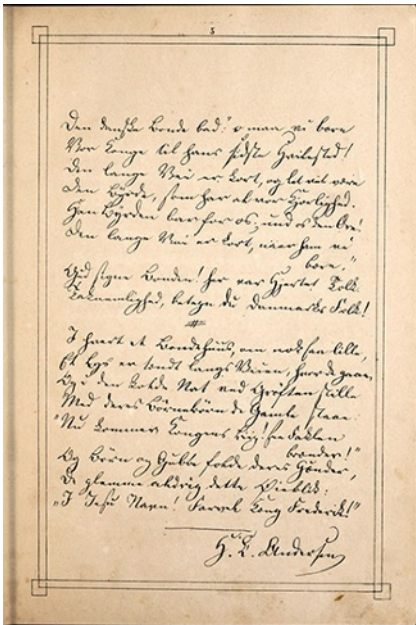 Den danske Bonde bad: "o maa vi bære
Vor Konge til hans sidste Hvilested!
Den lange Vei er kort, og let vil være
Den Byrde, som har al vor Kjærlighed.
Han Byrden bar for os, und os den Ære!
Den lange Vei er kort, naar ham vi
bære."
Gud signe Bonden! her var Hjertet Tolk.
Taknemlighed, betegn du Danmarks Folk!
I hvert et Bondehuus, om nok saa lille,
Et Lys er tændt langs Veien, hvor de gaae,
Og i den kolde Nat ved Grøften stille
Med deres Børnebørn de Gamle staae:
"Nu kommer Kongens Liig! see Faklen
brænder!"
Og Børn og Gubbe folde deres Hænder,
De glemme aldrig dette Øieblik:
"I Jesu Navn! Farvel Kong Frederik!"
H. C. Andersen